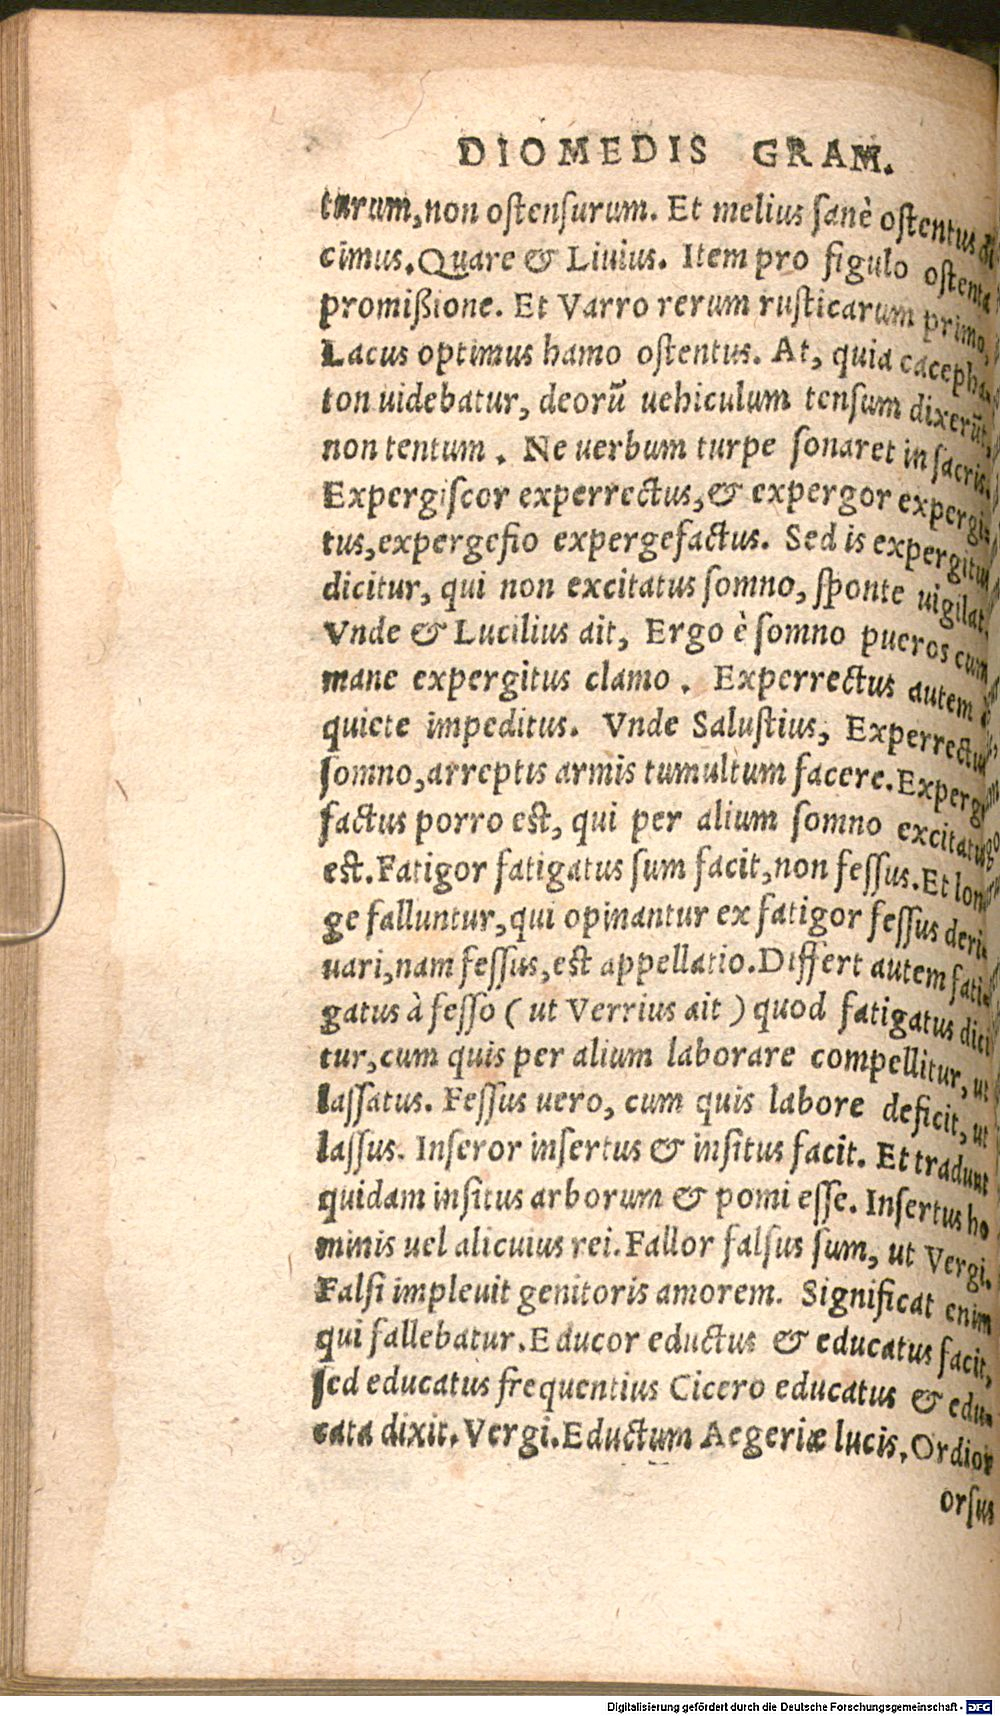 DIOMEDIS GRAM.
turum, non ostensurum. Et melius sanè ostentus di
cimus. Quare & Liuius. Item pro figulo ostenta
promißione. Et Varro rerum rusticarum primo,
Lacus optimus hamo ostentus. At, quia cacepha-
ton uidebatur, deorũ uehiculum tensum dixerũt,
non tentum. Ne uerbum turpe sonaret in sacris.
Expergiscor experrectus, & expergor expergi-
tus, expergefio expergefactus. Sed is expergitus
dicitur, qui non excitatus somno, sponte uigilat.
Vnde & Lucilius ait, Ergo è somno pueros cum
mane expergitus clamo. Experrectus autem
quiete impeditus. Vnde Salustius, Experrectus
somno, arreptis armis tumultum facere. Experge
factus porro est, qui per alium somno excitatus
est. Fatigor fatigatus sum facit, non fessus. Et lon
ge falluntur, qui opinantur ex fatigor fessus deri-
uari, nam fessus, est appellatio. Differt autem fati-
gatus à fesso (ut Verrius ait) quod fatigatus dici
tur, cum quis per alium laborare compellitur, ut
lassatus. Fessus uero, cum quis labore deficit, ut
lassus. Inseror insertus & insitus facit. Et tradunt
quidam insitus arborum & pomi esse. Insertus ho
minis uel alicuius rei. Fallor falsus sum, ut Vergi.
Falsi impleuit genitoris amorem. Significat enim
qui fallebatur. Educor eductus & educatus facit,
sed educatus frequentius Cicero educatus & edu-
cata dixit. Vergi. Eductum Aegeriæ lucis. Ordior
orsus
Digitalisierung gefördert durch die Deutsche Forschungsgemeinschaft - DFG